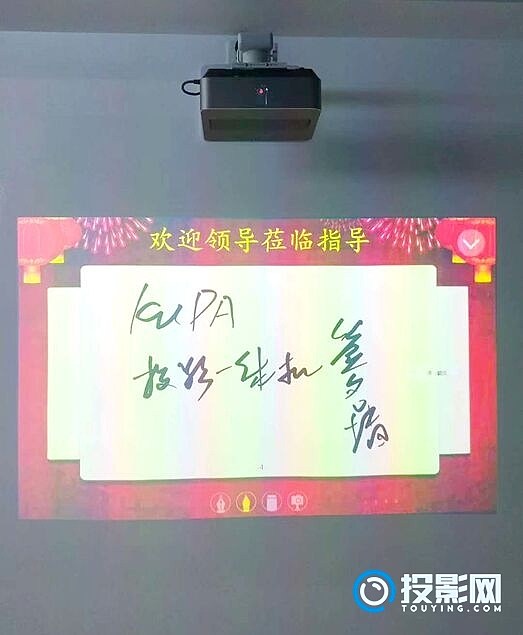 欢迎领导莅临指导
KUPA
投影一体机
4
投影网
TOUYING.COM